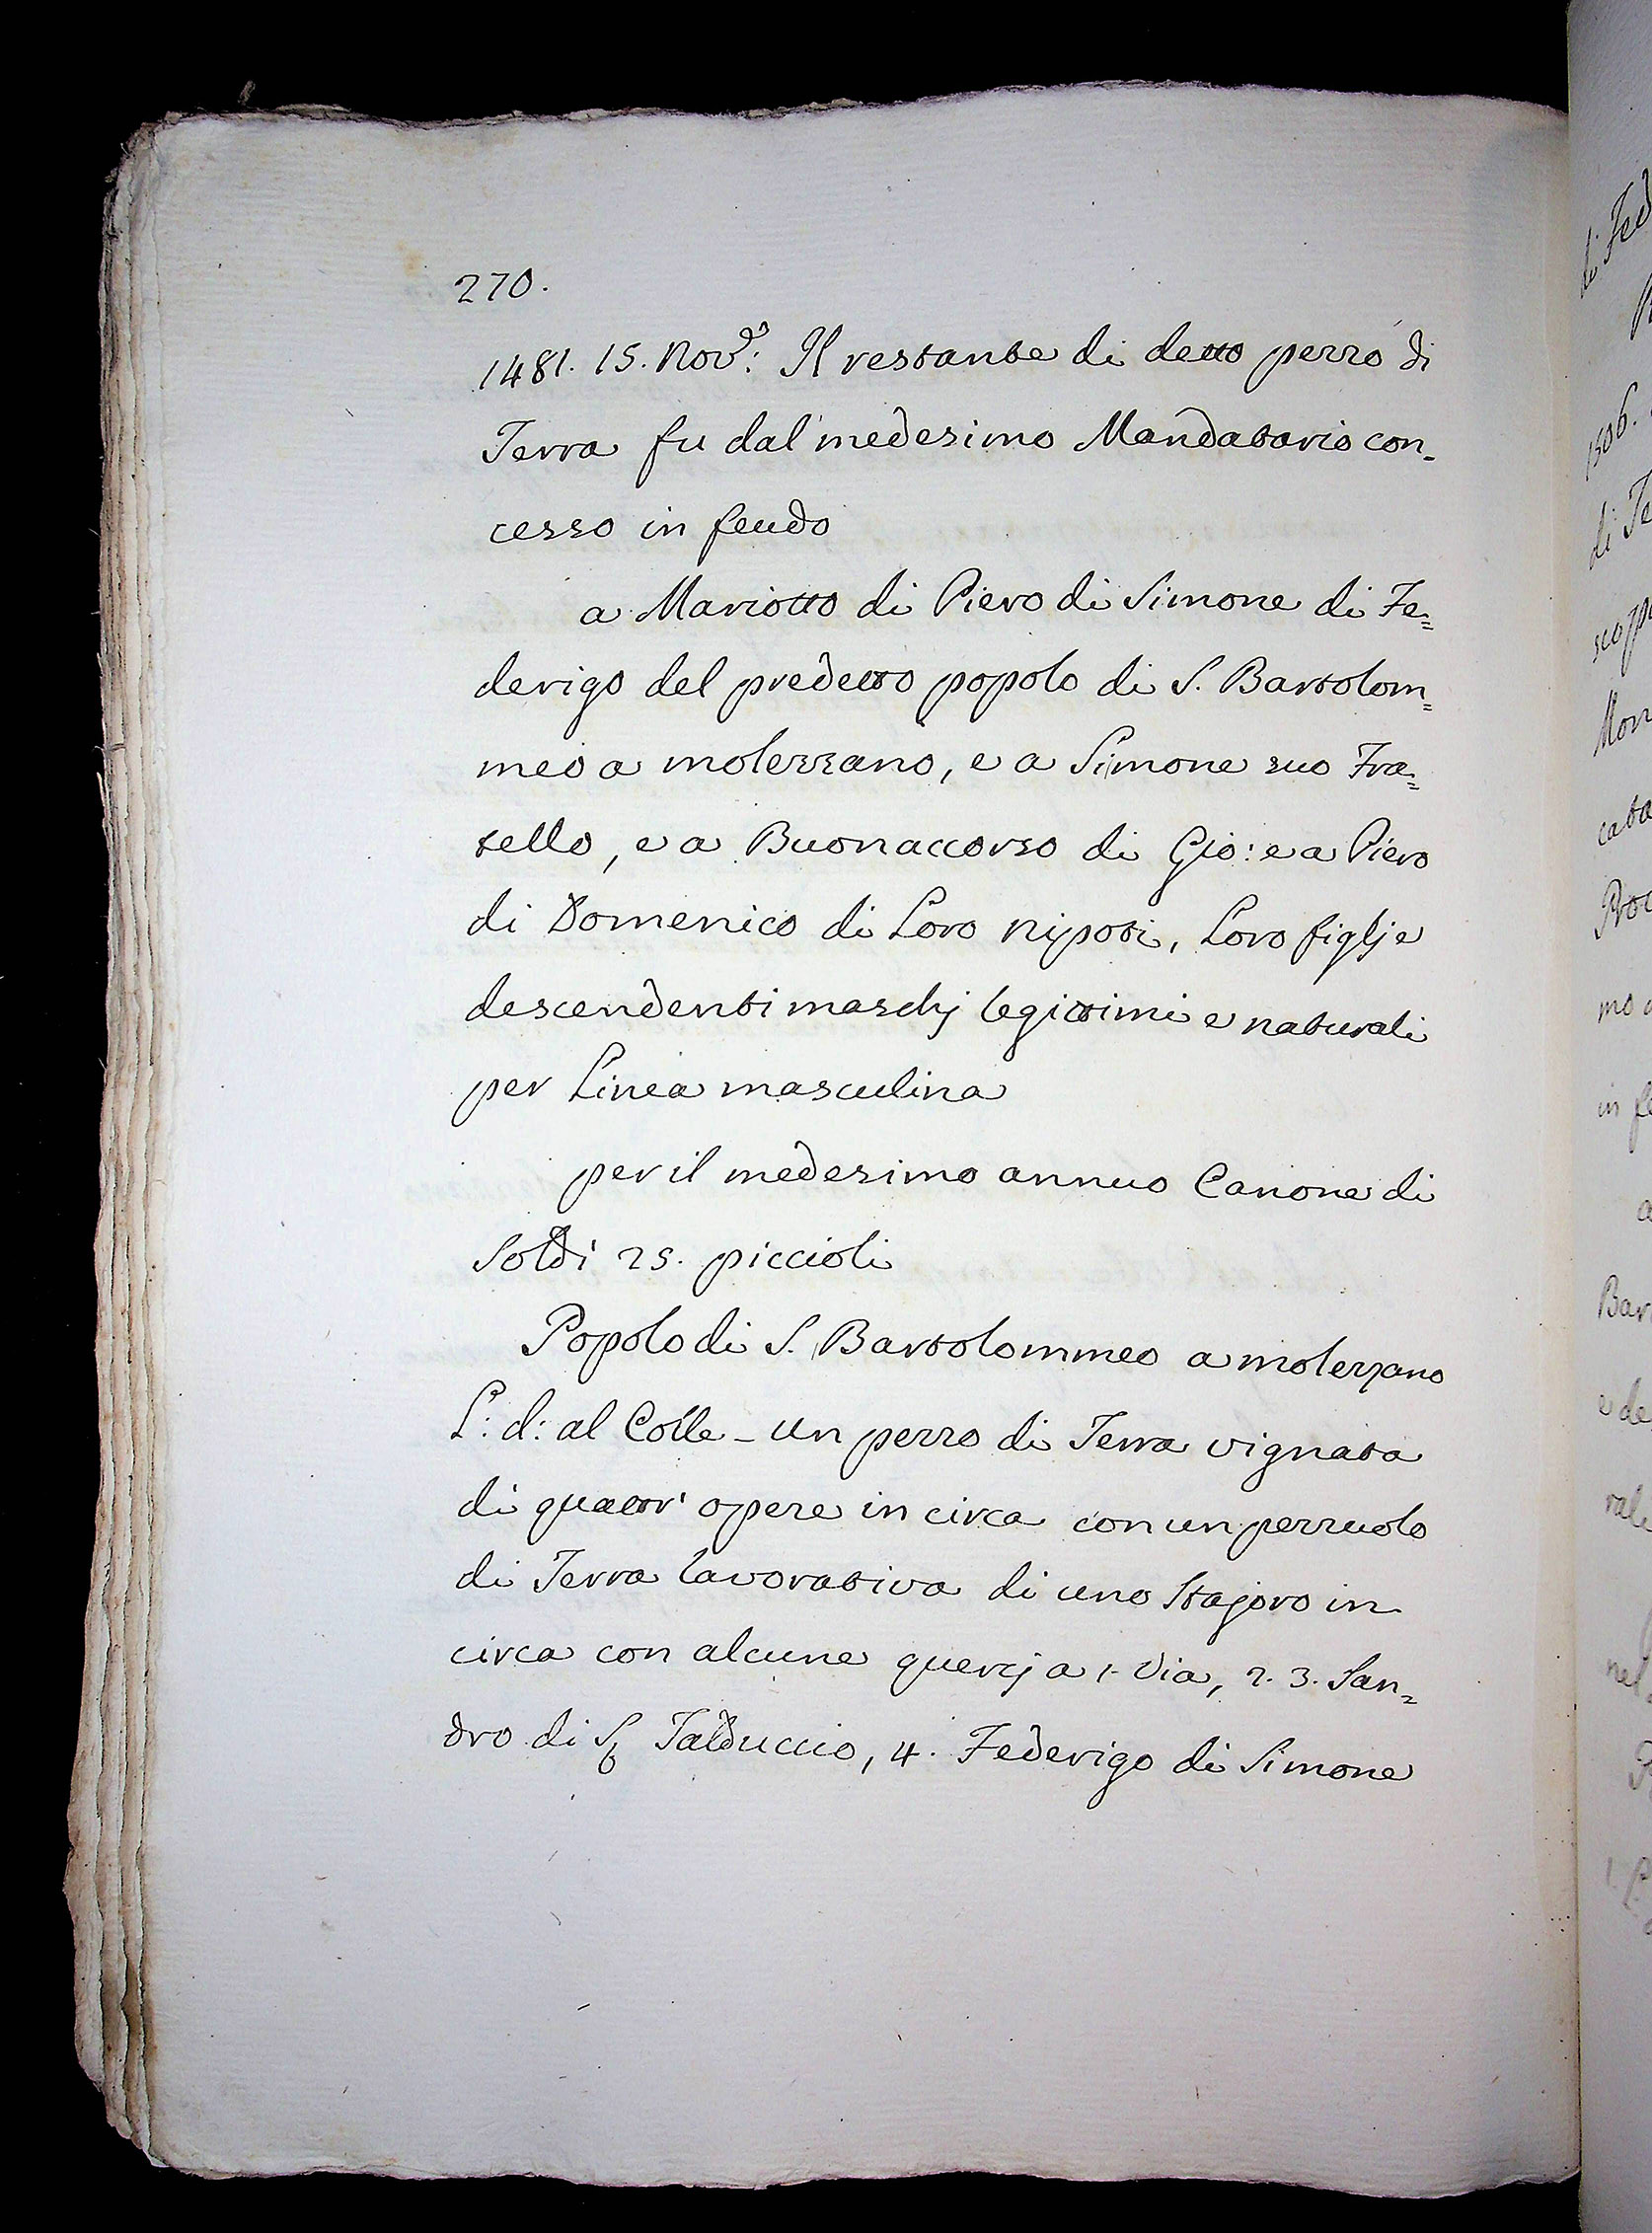 270.
1481. 15. Nov.e: Il restante di detto pezzo di
Terra fu dal medesimo Mandatario con-
cesso in feudo
a Mariotto di Piero di Simone di Fe=
derigo del predetto popolo di S. Bartolom=
meo a molezzano, e a Simone suo Fra=
tello, e a Buonaccorso di Gio: e a Piero
di Domenico di Loro nipoti, Loro figlj e
descendenti maschj legittimi e naturali
per Linea masculina
per il medesimo annuo Canone di
Soldi 25. piccioli
Popolo di S. Bartolommeo a molezzano
L: d: al Colle - un pezzo di Terra vignata
di quattr' opere in circa con un pezzuolo
di Terra lavorativa di uno Stajoro in
circa con alcune quercj a 1. Via, 2. 3. San=
dro di Talduccio, 4. Federigo di Simone